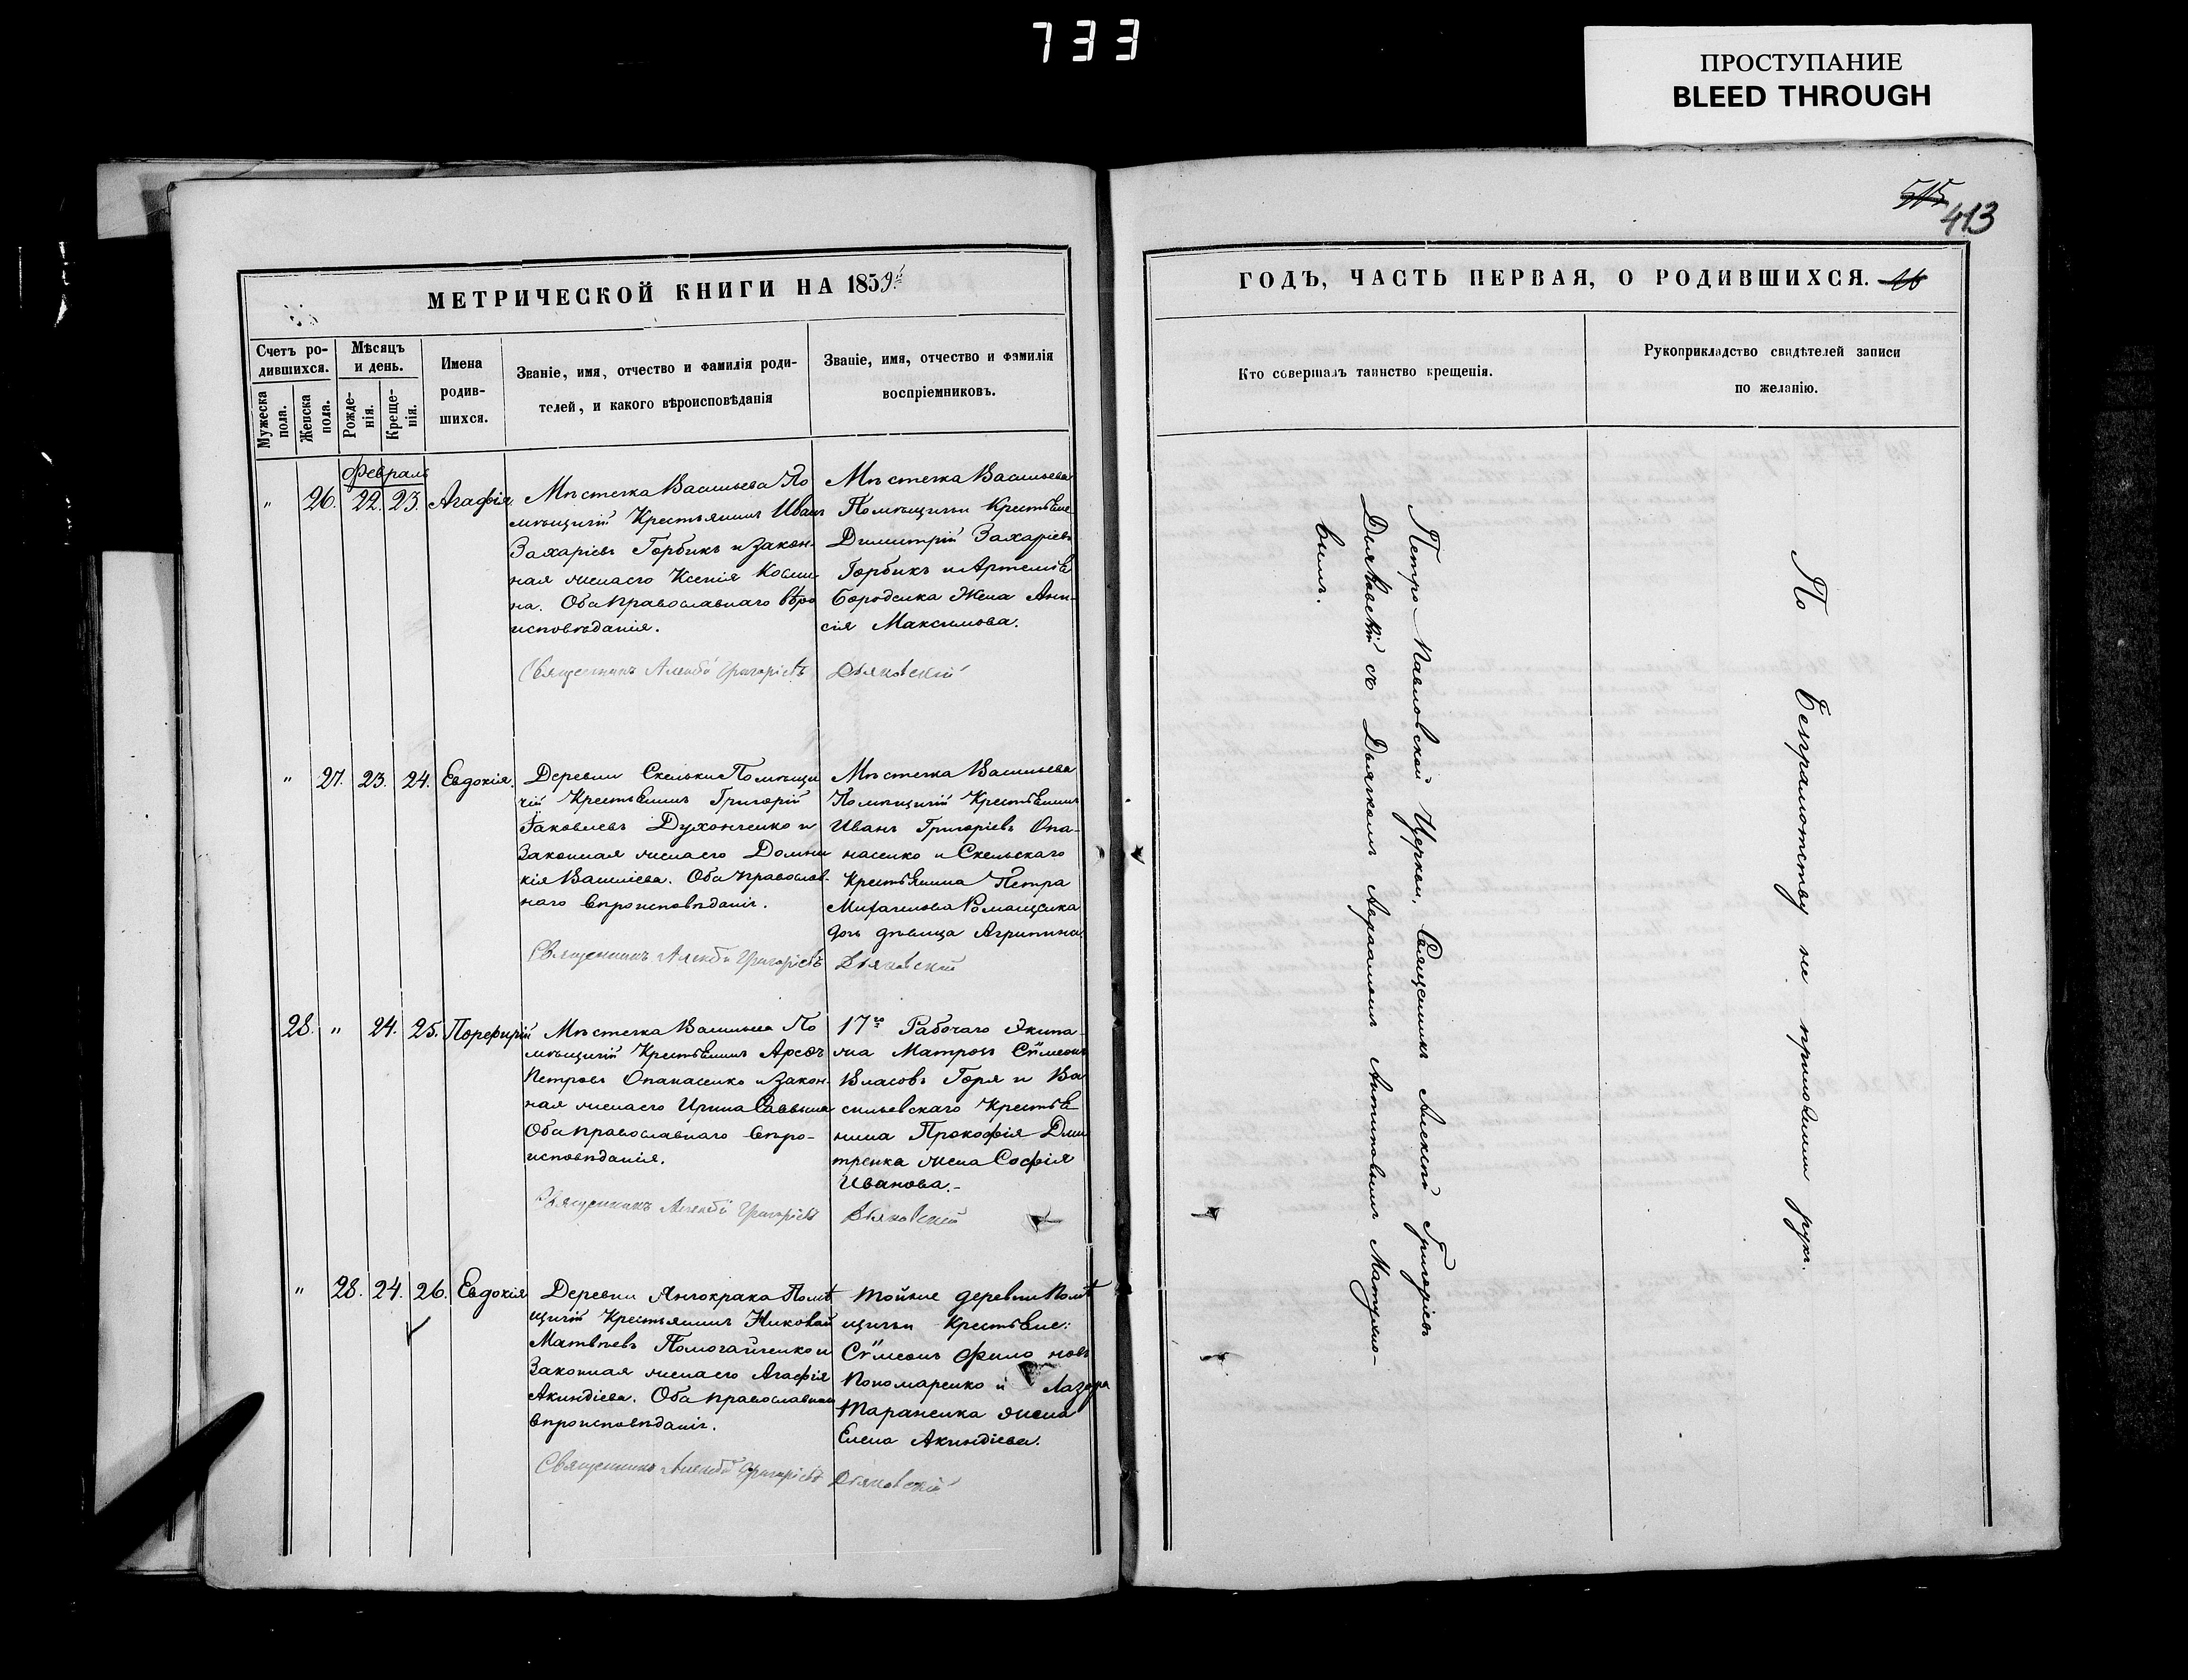 733
ПРОСТУПАНИЕ
BLEED THROUGH
МЕТРИЧЕСКОЙ КНИГИ НА 1859й
Счетъ ро-
дившихся.
Мужеска пола.
Женска пола.
Мѣсяцъ
и день.
Рожде-
нія.
Креще-
нія.
Имена
родив-
шихся.
Званіе, имя, отчество и фамилія роди-
телей, и какого вѣроисповѣданія
Званіе, имя, отчество и фамилія
воспріемниковъ.
Февраль
" 26. 22. 23. Агафія
Мѣстечка Васильева По
мѣщичій Крестьянинъ Иванъ
Захаріевъ Горбикъ и закон-
ная жена его Ксенія Косми-
на. Оба православнаго вѣро
исповѣданія.
Священникъ Алексѣй Григоріевъ
Мѣстечка Васильева
Помѣщичьи Крестьяне
Димитрій Захаріевъ
Горбикъ и Артемія
Бороденка Жена Ани-
сія Максимова.
Дьяковскій
" 27. 23. 24. Евдокія.
Деревни Скельки Помѣщи
чій Крестьянинъ Григорій
Іаковлевъ Духонченко и
Законная жена его Домни
кія Василіева. Оба православ-
наго вѣроисповѣданія.
Священникъ Алексѣй Григоріевъ
Мѣстечка Васильева
Помѣщичій Крестьянинъ
Иванъ Григоріевъ Опа-
насенко и Скельскаго
Крестьянина Петра
Михаилова Романценка
дочь дѣвица Агрипина
Дьяковскій
28. " 24. 25. Порефирій
Мѣстечка Васильева По
мѣщичій Крестьянинъ
Петровъ Опанасенко и закон-
ная жена его Ирина Саввина
Оба православнаго вѣро-
исповѣданія.
Священникъ Алексѣй Григоріевъ
17го Рабочаго Экипа-
жа Матрозъ Сѵмеонъ
Власовъ Горя и Ва
сильевскаго Крестья
нина Прокофія Дми
тренка жена Софія
Иванова.-
Дьяковскій
" 28. 24. 26. Евдокія
Деревни Янчокрака Помѣ
щичій Крестьянинъ Николай
Матвѣевъ Помогайченко и
Законная жена его Агафія
Акиндіева. Оба православнаго
вѣроисповѣданія.
Священникъ Алексѣй Григоріевъ
Тойже деревни Помѣ
щичьи Крестьяне:
Сѵмеонъ Фило новъ
Пономаренко и Лазаря
Тараненка жена
Елена Акиндіева.
Дьяковскій
515
413
ГОДЪ, ЧАСТЬ ПЕРВАЯ, О РОДИВШИХСЯ.
Кто совершалъ таинство крещенія.
Рукоприкладство свидѣтелей записи
по желанію.
Петро Павловской Церкви, Священникъ Алексѣй Григоріевъ
Дьяковскій съ Дьячкомъ Авраамомъ Антиповымъ
вымъ.
По безграмотству не приложили рукъ.